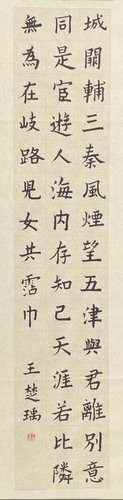 城闕輔三秦風煙望五津與君離別意
同是宦遊人海內存知己天涯若比隣
無為在岐路兒女共霑巾
王楚瑀